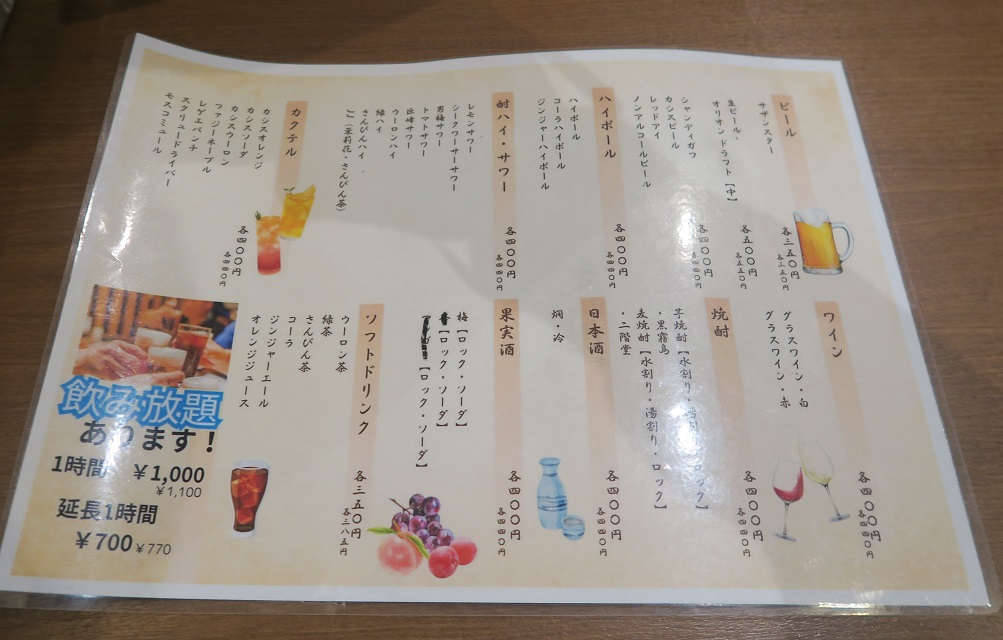 ビール
サザンスター
各三五〇円
各三八五円
生ビール・
オリオンドラフト【中】
各五〇〇円
各五五〇円
シャンディガフ
カシスビール
レッドアイ
ノンアルコールビール
各四〇〇円
各四四〇円
ハイボール
ハイボール
コーラハイボール
ジンジャーハイボール
各四〇〇円
各四四〇円
酎ハイ・サワー
レモンサワー
シークワーサーサワー
男梅サワー
トマトサワー
巨峰サワー
ウーロンハイ
緑ハイ
さんぴんハイ
(茉莉花・さんぴん茶)
各四〇〇円
各四四〇円
カクテル
カシスオレンジ
カシスソーダ
カシスウーロン
ファジーネーブル
レゲエパンチ
スクリュードライバー
モスコミュール
各四〇〇円
各四四〇円
ワイン
グラスワイン・白
グラスワイン・赤
各四〇〇円
各四四〇円
焼酎
芋焼酎【水割り・湯割り・ロック】
・黒霧島
麦焼酎【水割り・湯割り・ロック】
・二階堂
各四〇〇円
各四四〇円
日本酒
燗・冷
各四〇〇円
各四四〇円
果実酒
梅【ロック・ソーダ】
【ロック・ソーダ】
【ロック・ソーダ】
各四〇〇円
各四四〇円
ソフトドリンク
ウーロン茶
緑茶
さんぴん茶
コーラ
ジンジャーエール
オレンジジュース
各三五〇円
各三八五円
飲み放題
あります！
1時間 ￥1,000
￥1,100
延長1時間
￥700 ￥770